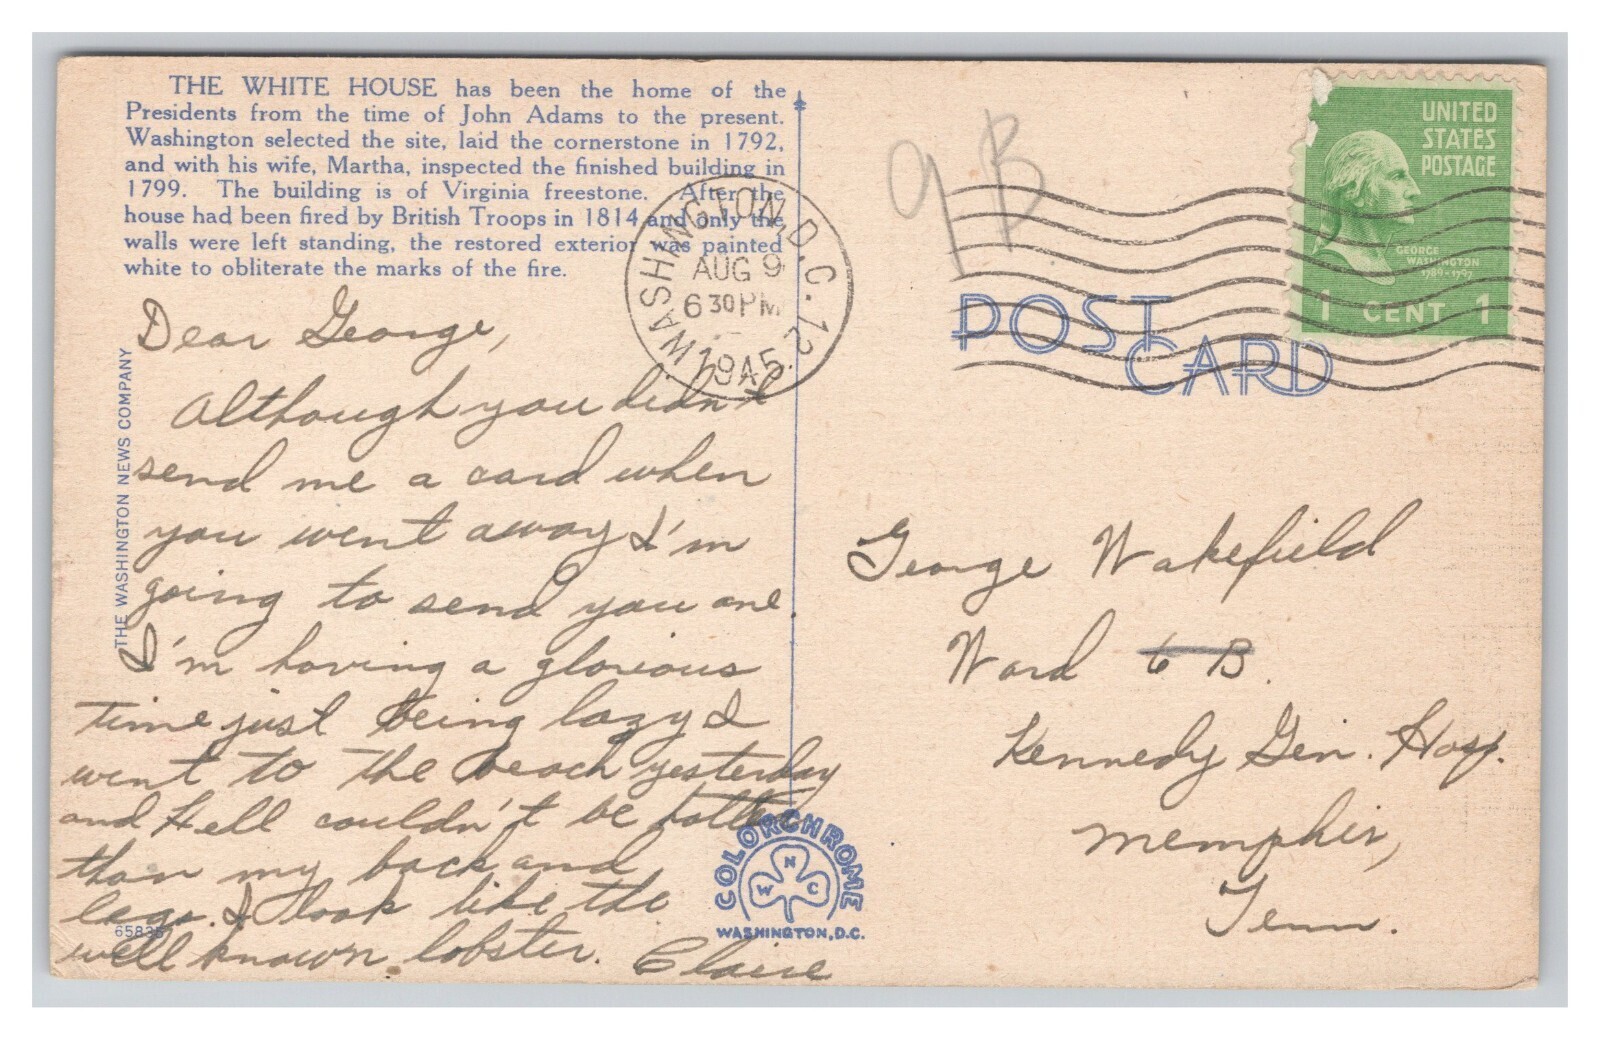 THE WHITE HOUSE has been the home of the
Presidents from the time of John Adams to the present.
Washington selected the site, laid the cornerstone in 1792,
and with his wife, Martha, inspected the finished building in
1799. The building is of Virginia freestone. After the
house had been fired by British Troops in 1814 and only the
walls were left standing, the restored exterior was painted
white to obliterate the marks of the fire.
Dear George,
Although you didn't
send me a card when
you went away I'm
going to send you one.
I'm having a glorious
time just being lazy I
went to the beach yesterday
and Hell couldn't be hotter
than my back and
legs. I look like the
well known lobster. Claire
THE WASHINGTON NEWS COMPANY
65835
WASHINGTON, D.C. 12
AUG 9
6 30 PM
1945
9B
UNITED
STATES
POSTAGE
GEORGE
WASHINGTON
1789-1797
1 CENT 1
POST
CARD
George Wakefield
Ward 6 B.
Kennedy Gen. Hosp.
Memphis,
Tenn.
COLORCHROME
N
W C
WASHINGTON, D.C.